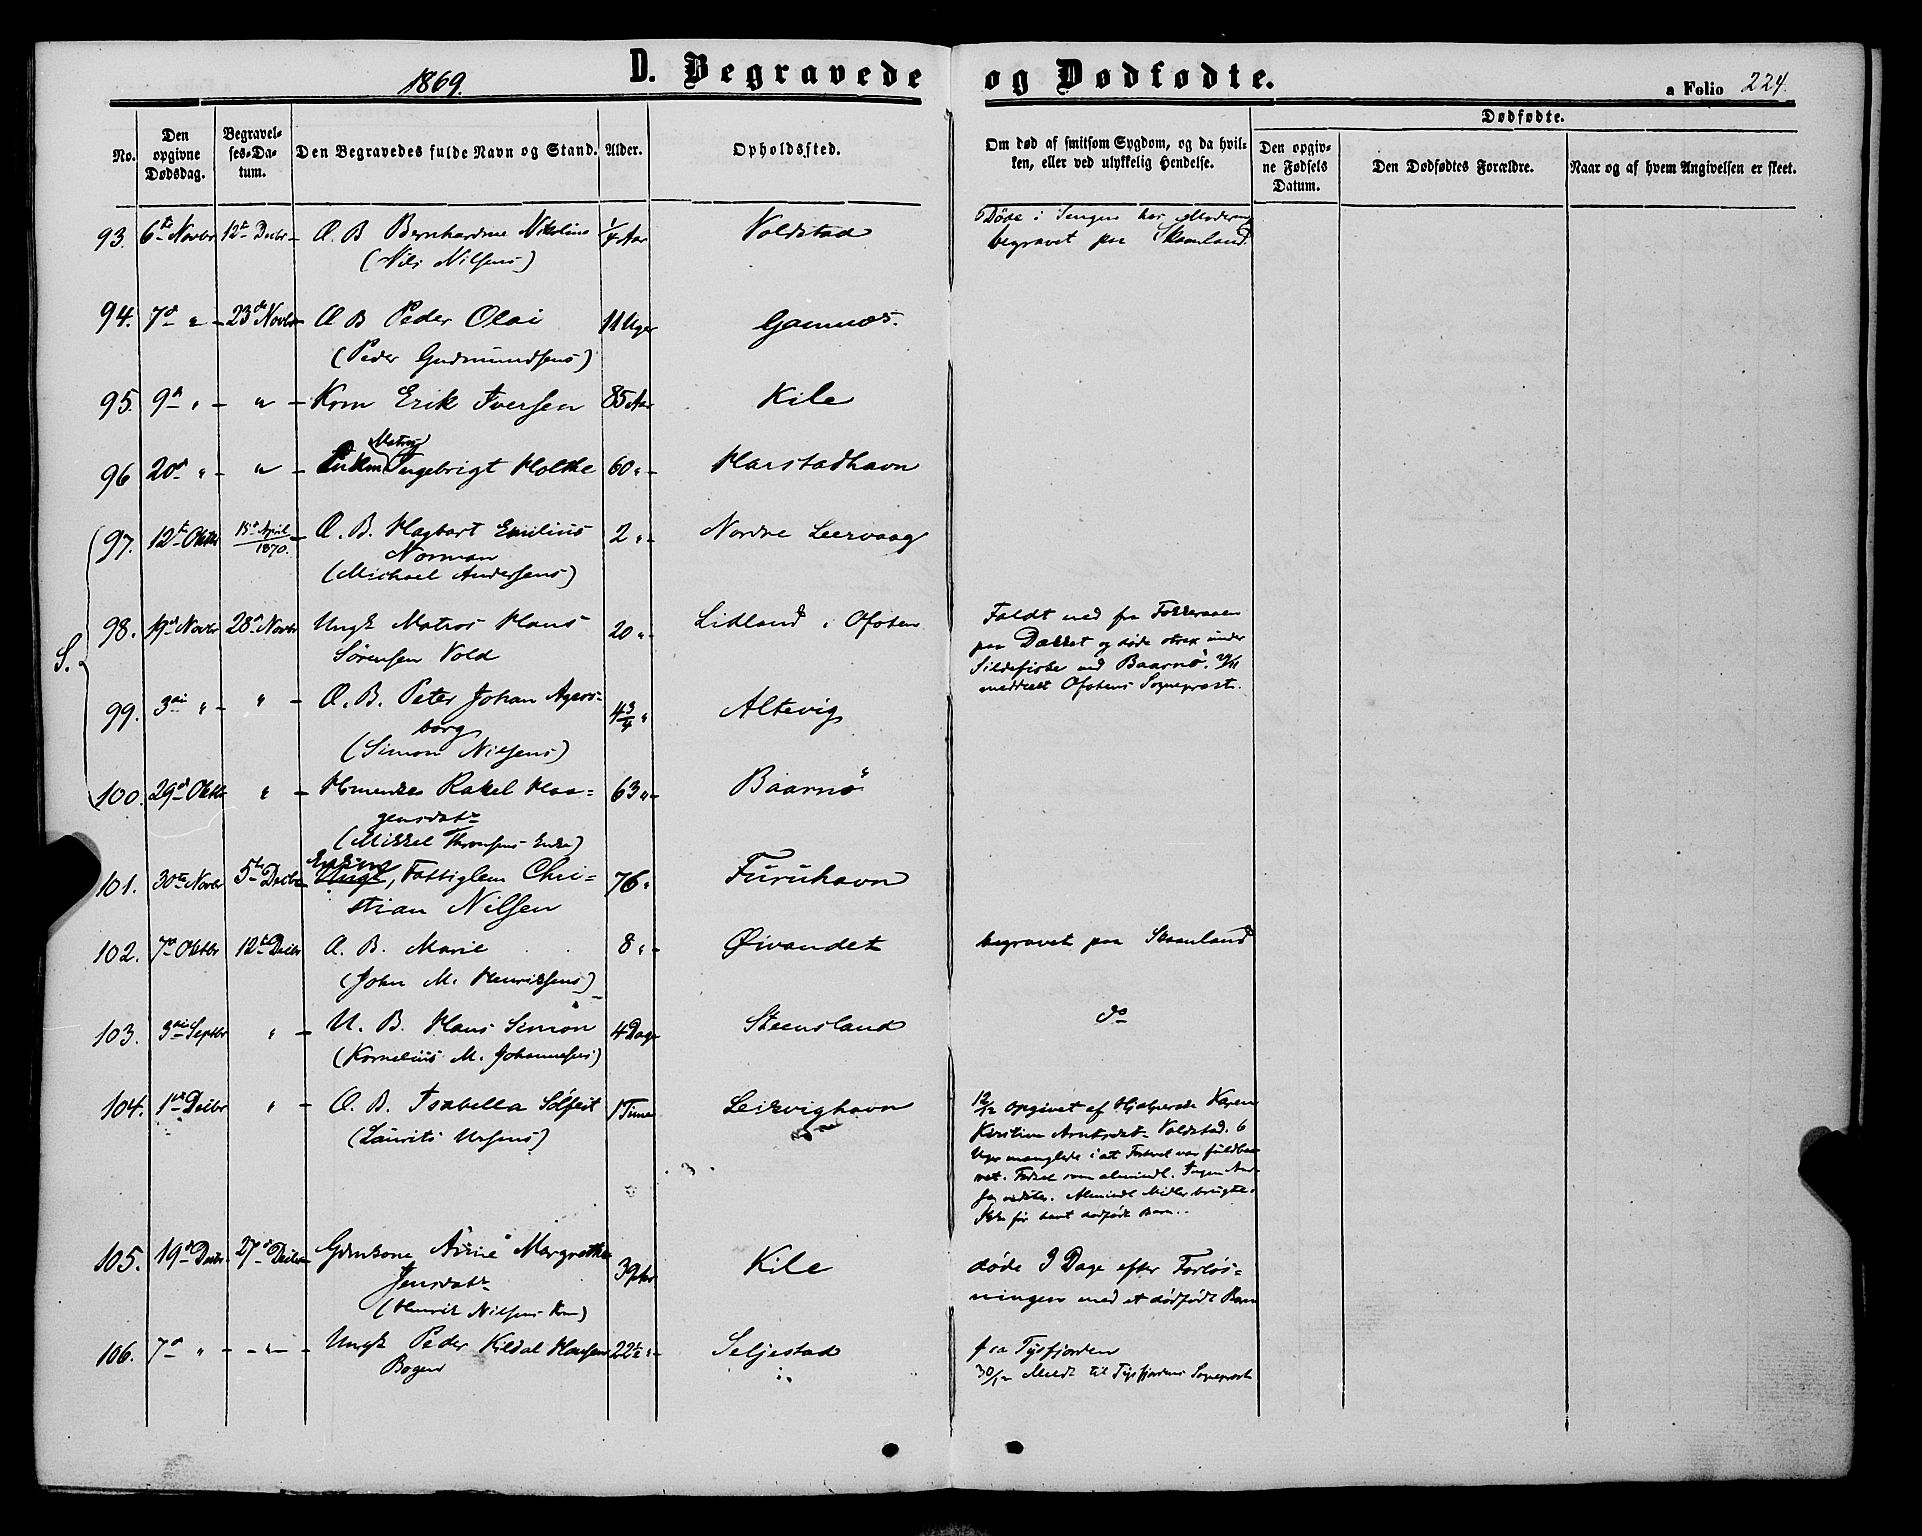 1869.
D. Begravede og Dødfødte.
a Folio 224.
No.
Den opgivne Dødsdag.
Begravelses-Datum.
Den Begravedes fulde Navn og Stand.
Alder.
Opholdssted.
Om død af smitsom Sygdom, og da hvilken, eller ved ulykkelig Hendelse.
Dødfødte.
Den opgivne Fødsels Datum.
Den Dødfødtes Forældre.
Naar og af hvem Angivelsen er skeet.
93. 6te Novbr 12te Decbr Æ. B Bernhardine Nikoline 1/4 Aar Voldstad Døde i Sengen hos Moderen
(Nils Nilsens) begravet paa Skaanland
94. 7de " 23de Novbr Æ B Peder Olai 11 Uger Gamnæs.
(Peder Gudmundsens)
95. 9de " " Kom Erik Iversen 85 Aar Kile
96 20de " " Enkm Ingebrigt Holthe 60 " Harstadhavn
97. 12te Oktbr 15de April 1870. Æ. B. Hagbart Emilius 2 " Nordre Leervaag
Norman
(Michael Andersens)
S.
98. 19de Novbr 28de Novbr Ungk Matros Hans 20 " Lidland i Ofoten Faldt ned fra Fokkeraaen
Sørensen Vold paa Dækket og døde strax under
Sildefiske ved Baarnø.
meddeelt Ofotens Sogneprest.
99. 3die " " Æ. B. Peter Johan Agers- 4 3/4 " Altevig
borg
(Simon Nilsens)
100. 29de Oktbr " Rakel Haa- 63 " Baarnø
gensdatr
(Mikkel Thronsens Enke)
101. 30te Novbr 5te Decbr Enkm Ungk, Fattiglem Chri- 76 " Furuhavn
stian Nilsen
102. 7de Oktbr 12te Decbr Æ. B. Marie 8 " Øivandet begravet paa Skaanland
(John M. Henriksens)
103. 3die Septbr " U. B. Hans Simon 4 Dage Steensland do
(Kornelius M. Johannesens)
104. 1ste Decbr " Æ. B. Isabella Solfeit 1 Time Leikvighavn 12/12 opgivet af Hjælperske Karen
(Laurits Ursens) Kirstine Arntsdat. Voldstad. 6
Uger manglede i at Fosteret var fuldbaa-
ret. Fødsel som almindl. Ingen
Almindl Midler brugte.
Ikke før havt dødfødt Barn.
105. 19de Decbr 27de Decbr Gdmkone Anne Margrethe 39 Aar Kile døde 3 Dage efter Forløs-
Jensdatr ningen med et dødfødt Barn
(Henrik Nilsens Kone)
106. 7de " " Ungk Peder Kildal Hansen 22 1/2 " Seljestad fra Tysfjorden
Bogen 30/12 Meldt til Tysfjordens Sogneprest